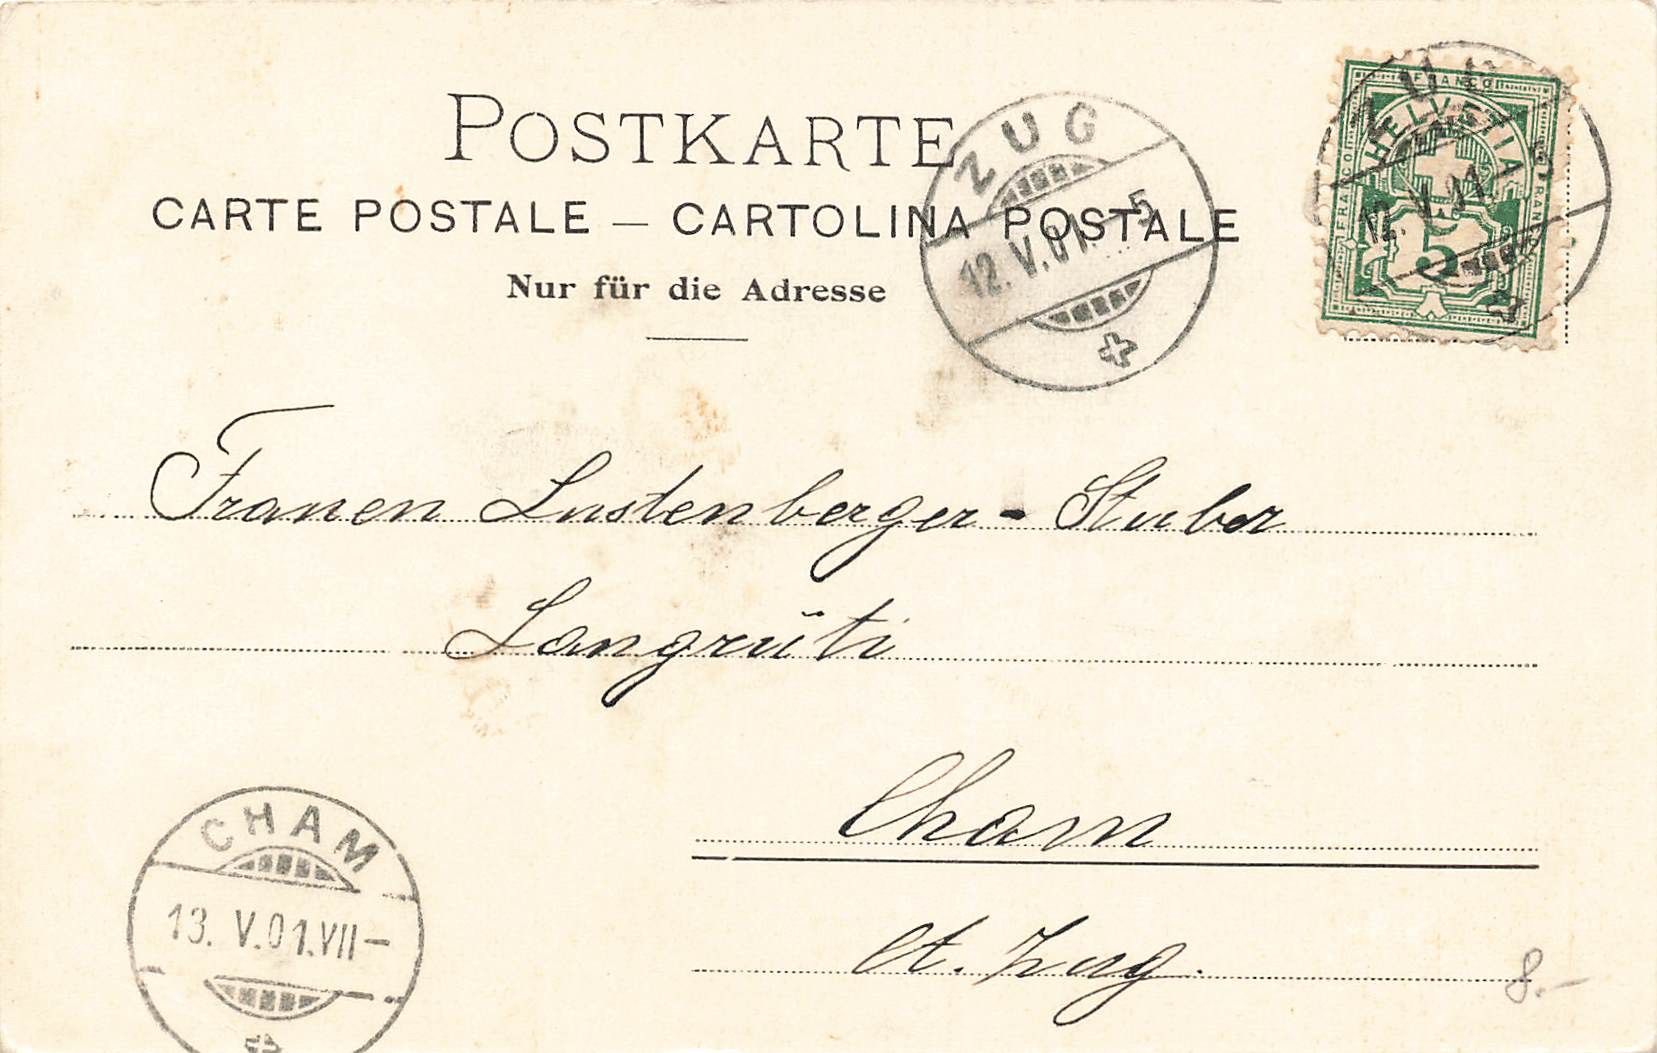 POSTKARTE
CARTE POSTALE – CARTOLINA POSTALE
Nur für die Adresse
ZUG
12. V. 01. – 5
FRANCO
HELVETIA
FRANCO
FRANCO
5
ZUG
12. V. 01
Frauen Lustenberger - Stuber
Langrüti
Cham
Ct. Zug.
CHAM
13. V. 01. VII –
8.–